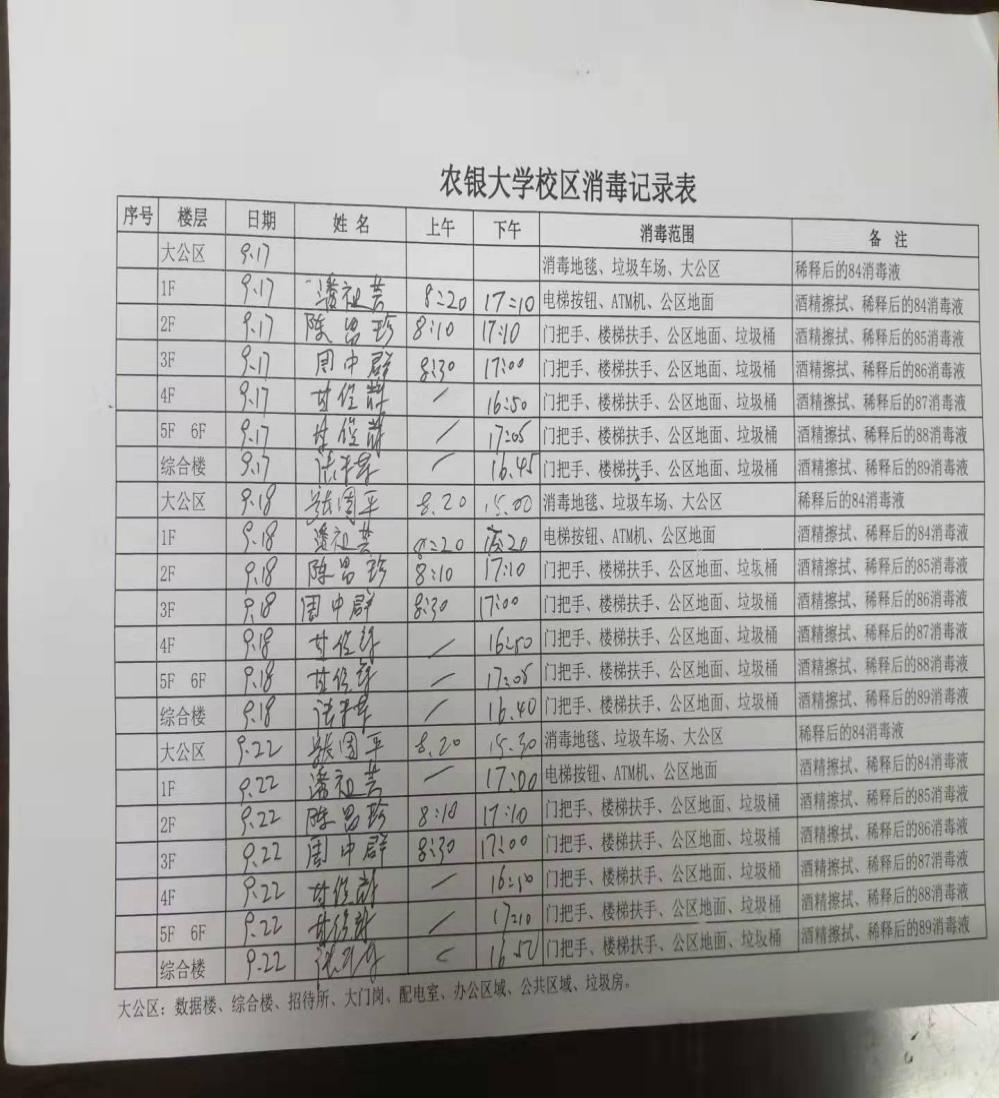 农银大学校区消毒记录表
序号 楼层 日期 姓名 上午 下午 消毒范围 备注
大公区 9.17 消毒地毯、垃圾车场、大公区 稀释后的84消毒液
1F 9.17 潘祖芸 8:20 17:10 电梯按钮、ATM机、公区地面 酒精擦拭、稀释后的84消毒液
2F 9.17 陈昌珍 8:10 17:10 门把手、楼梯扶手、公区地面、垃圾桶 酒精擦拭、稀释后的85消毒液
3F 9.17 周中群 8:30 17:00 门把手、楼梯扶手、公区地面、垃圾桶 酒精擦拭、稀释后的86消毒液
4F 9.17 / 16:50 门把手、楼梯扶手、公区地面、垃圾桶 酒精擦拭、稀释后的87消毒液
5F 6F 9.17 / 17:05 门把手、楼梯扶手、公区地面、垃圾桶 酒精擦拭、稀释后的88消毒液
综合楼 9.17 / 16.45 门把手、楼梯扶手、公区地面、垃圾桶 酒精擦拭、稀释后的89消毒液
大公区 9.18 张周平 8.20 15.00 消毒地毯、垃圾车场、大公区 稀释后的84消毒液
1F 9.18 潘祖芸 8:20 电梯按钮、ATM机、公区地面 酒精擦拭、稀释后的84消毒液
2F 9.18 陈昌珍 8:10 17:10 门把手、楼梯扶手、公区地面、垃圾桶 酒精擦拭、稀释后的85消毒液
3F 9.18 周中群 8:30 17:00 门把手、楼梯扶手、公区地面、垃圾桶 酒精擦拭、稀释后的86消毒液
4F 9.18 / 16:50 门把手、楼梯扶手、公区地面、垃圾桶 酒精擦拭、稀释后的87消毒液
5F 6F 9.18 / 17:05 门把手、楼梯扶手、公区地面、垃圾桶 酒精擦拭、稀释后的88消毒液
综合楼 9.18 / 16.40 门把手、楼梯扶手、公区地面、垃圾桶 酒精擦拭、稀释后的89消毒液
大公区 9.22 张周平 8.20 15.30 消毒地毯、垃圾车场、大公区 稀释后的84消毒液
1F 9.22 潘祖芸 / 17:00 电梯按钮、ATM机、公区地面 酒精擦拭、稀释后的84消毒液
2F 9.22 陈昌珍 8:10 17:10 门把手、楼梯扶手、公区地面、垃圾桶 酒精擦拭、稀释后的85消毒液
3F 9.22 周中群 8:30 17:00 门把手、楼梯扶手、公区地面、垃圾桶 酒精擦拭、稀释后的86消毒液
4F 9.22 / 门把手、楼梯扶手、公区地面、垃圾桶 酒精擦拭、稀释后的87消毒液
5F 6F 9.22 / 17:10 门把手、楼梯扶手、公区地面、垃圾桶 酒精擦拭、稀释后的88消毒液
综合楼 9.22 16.50 门把手、楼梯扶手、公区地面、垃圾桶 酒精擦拭、稀释后的89消毒液
大公区：数据楼、综合楼、招待所、大门岗、配电室、办公区域、公共区域、垃圾房。